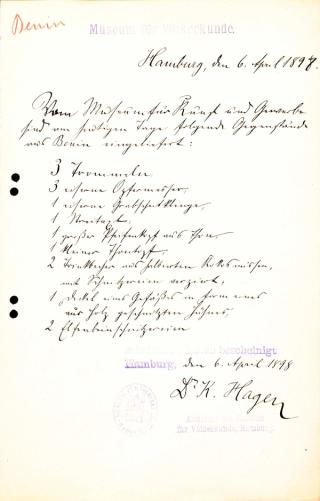 Benin
Museum für Völkerkunde.
Hamburg, den 6. April 1898.
Vom Museum für Kunst und Gewerbe
sind am heutigen Tage folgende Gegenstände
aus Benin eingeliefert:
3 Trommeln
3 eiserne Opfermesser,
1 eiserne Grabscheitklinge,
1
1 großer Pfeifenkopf aus Thon,
1 kleiner Thontopf,
2 Trinkbecher aus halbierten Kokosnüssen,
mit Schnitzereien verziert,
1 Deckel eines Gefäßes in Form eines
aus Holz geschnitzten Huhnes,
2 Elfenbeinschnitzereien
bescheinigt
Hamburg, den 6. April 1898
Dr. K. Hagen
für Völkerkunde, Hamburg.